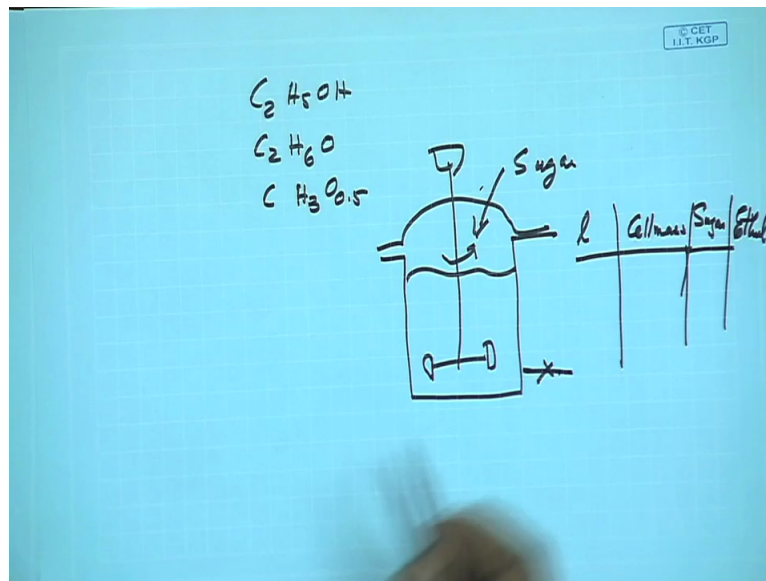 © CET
I.I.T. KGP
C₂ H₅ OH
C₂ H₆ O
C H₃ O₀.₅
Sugar
Cell mass Sugar